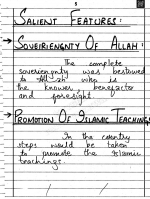 5
SALIENT FEATURES:
→ SOVEREIENGNTY OF ALLAH:
The complete
sovereiengnty was bestowed
to Allah who is
the knower, benefactor
and foresight.
→ PROMOTION OF ISLAMIC TEACHINGS
In the country
steps would be taken
to promote the Islamic
teachings.